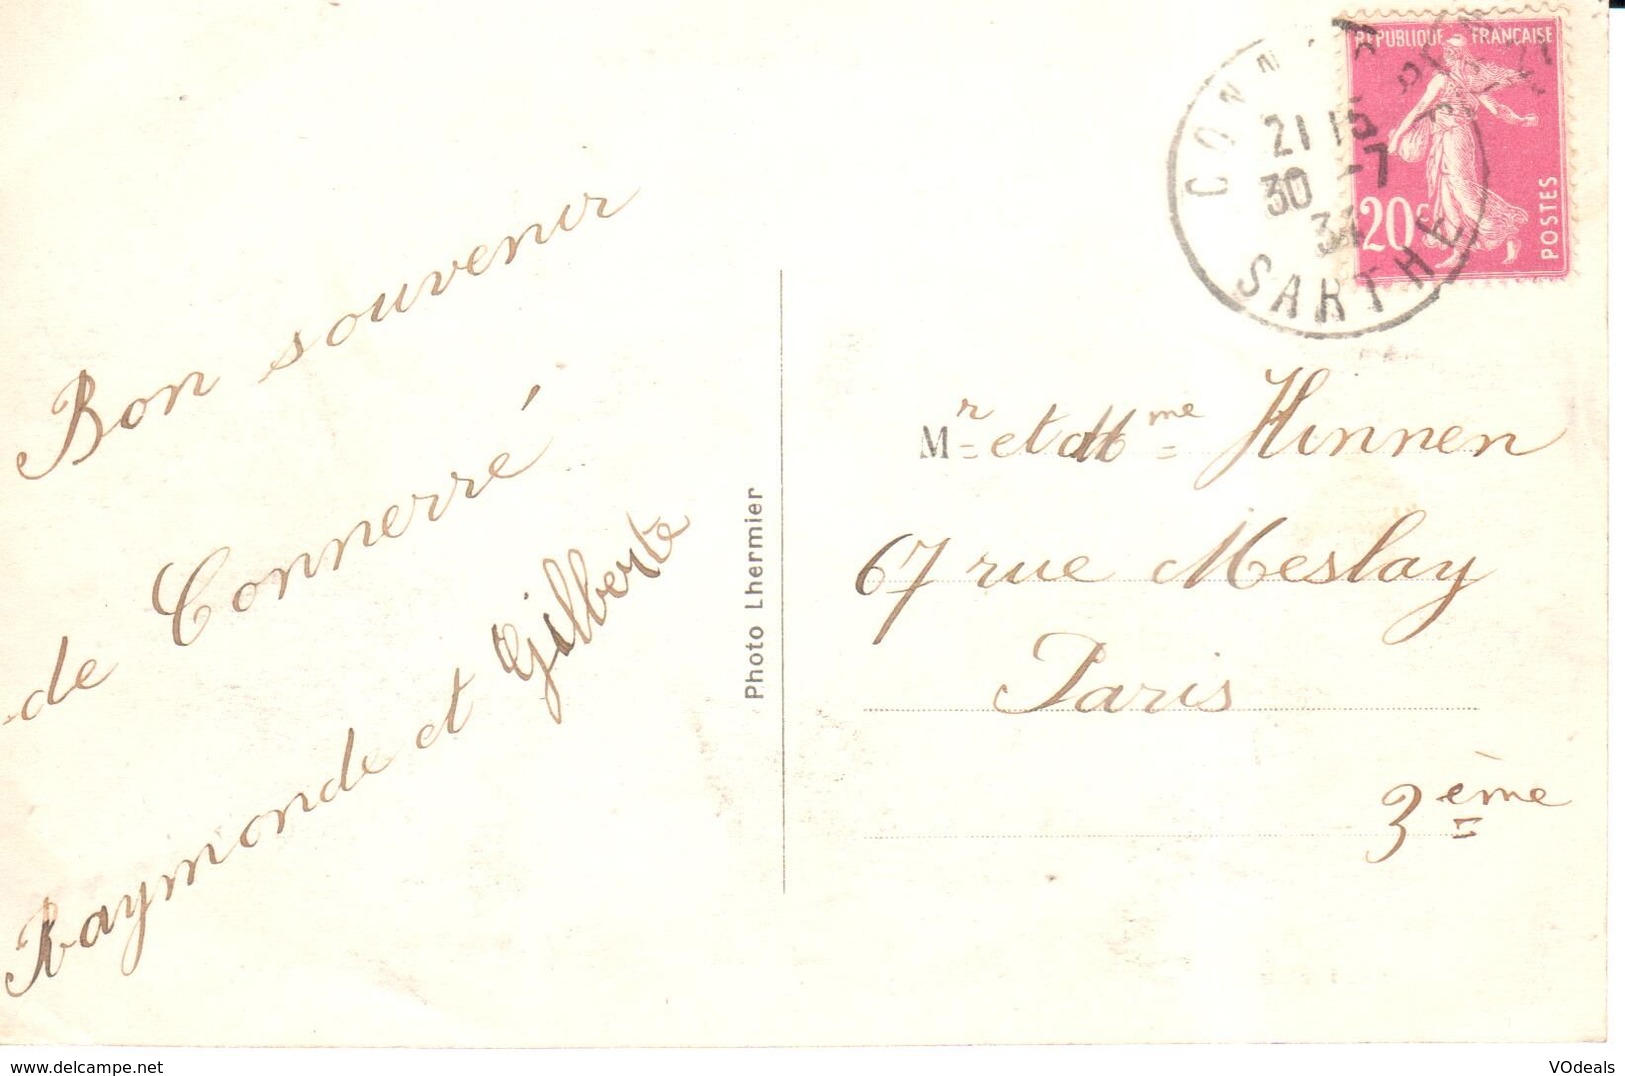 Bon souvenir
de Connerré
Raymonde et Gilberte
Photo Lhermier
REPUBLIQUE FRANÇAISE
20c
POSTES
21 15
30 -7
34
SARTHE
Mr et Mme Hinnen
67 rue Meslay
Paris
3ème
www.delcampe.net
VOdeals